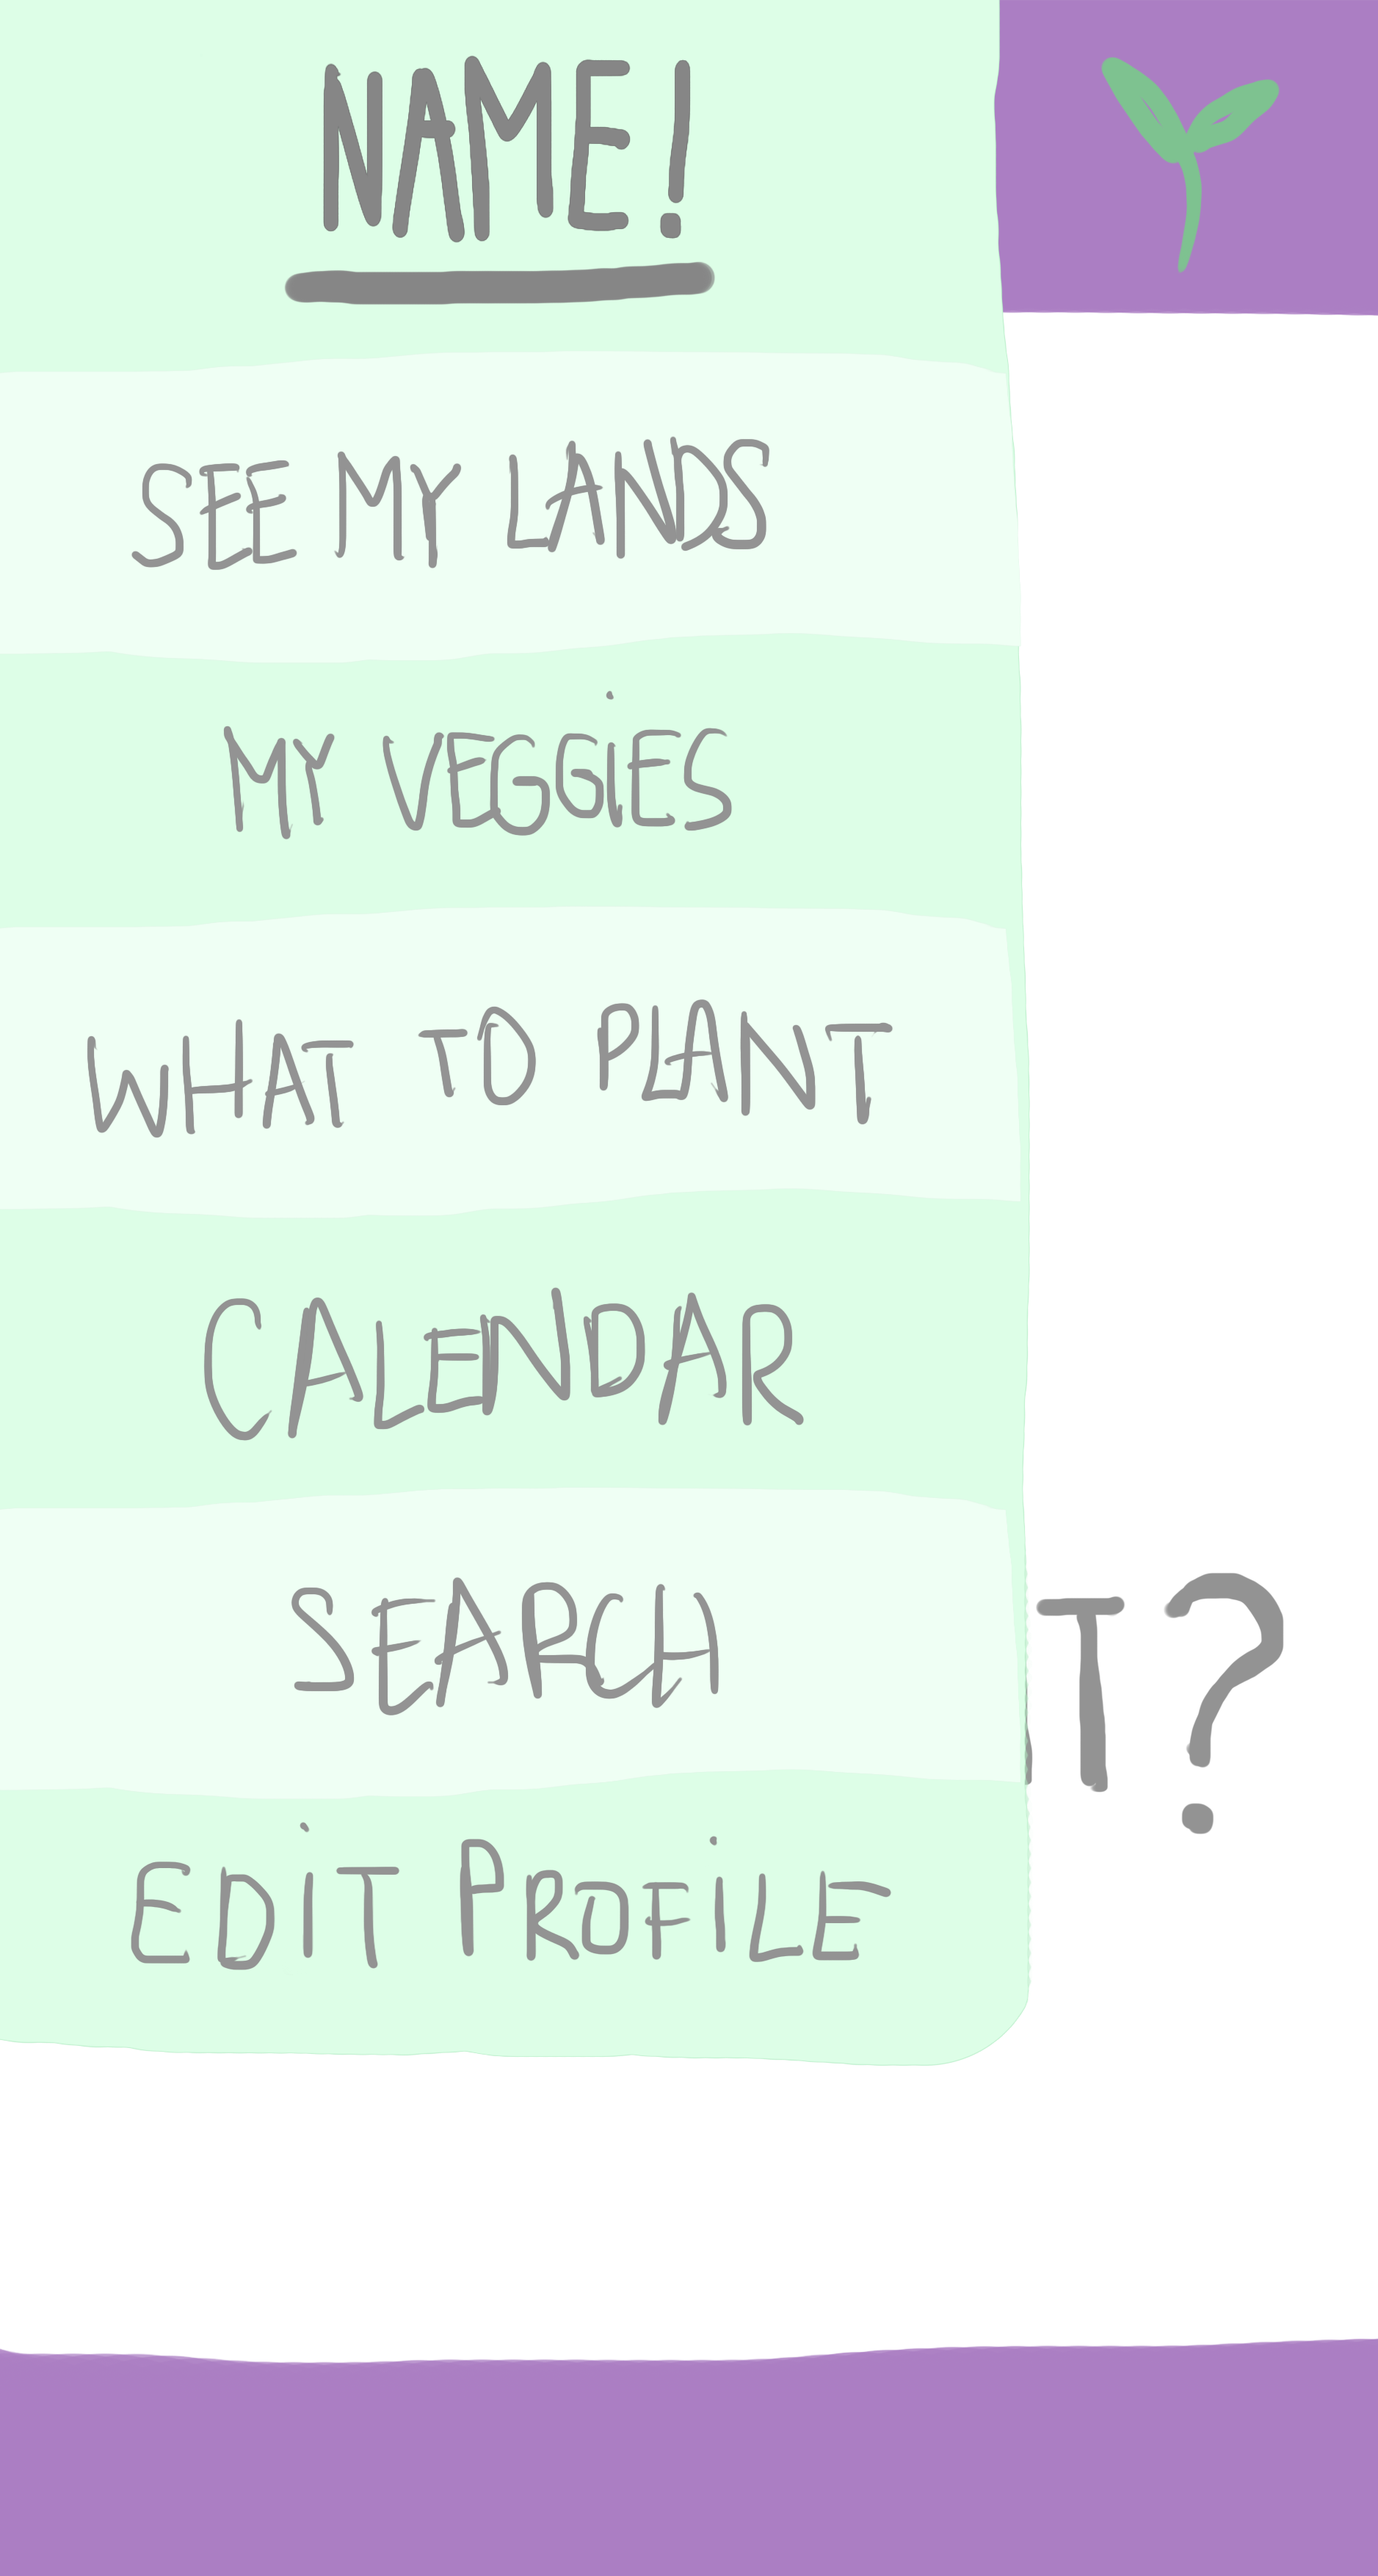 NAME!
SEE MY LANDS
MY VEGGIES
WHAT TO PLANT
CALENDAR
SEARCH
T?
EDIT PROFILE